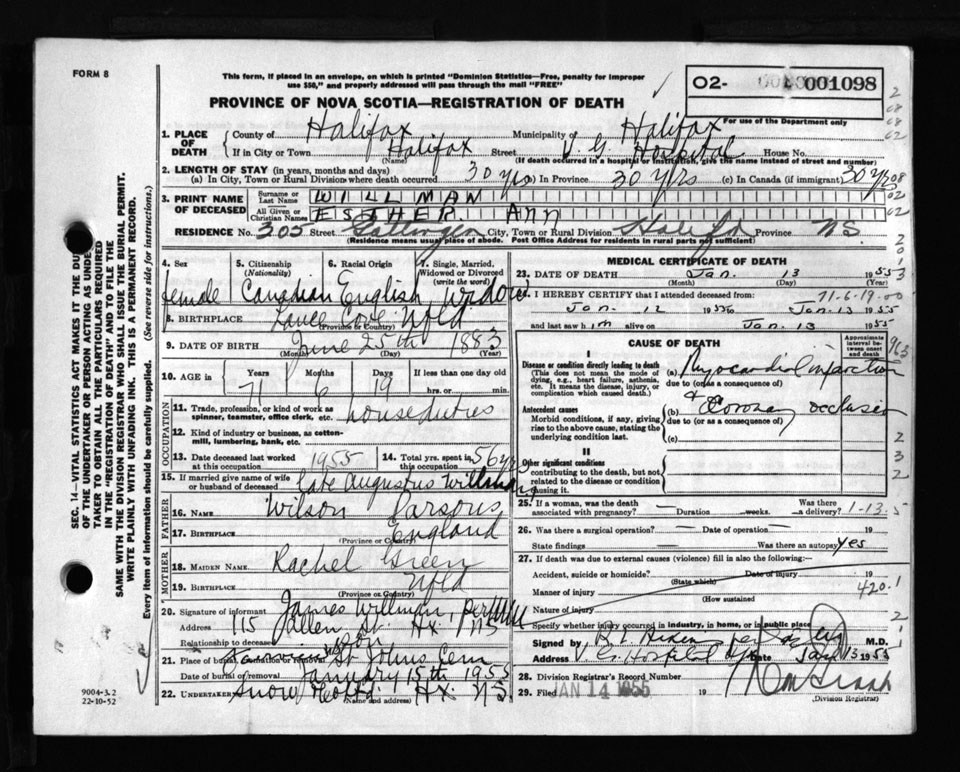 FORM 8
This form, if placed in an envelope, on which is printed "Dominion Statistics—Free, penalty for improper
use $50," and properly addressed will pass through the mail "FREE"
02- 001098
PROVINCE OF NOVA SCOTIA—REGISTRATION OF DEATH
For use of the Department only
1. PLACE OF DEATH { County of Halifax Municipality of Halifax
If in City or Town Halifax Street V. G. Hospital House No.
(Name) (If death occurred in a hospital or institution, give the name instead of street and number)
2. LENGTH OF STAY (in years, months and days)
(a) In City, Town or Rural Division where death occurred 30 yrs (b) In Province 30 yrs (c) In Canada (if immigrant) 30 yrs
3. PRINT NAME OF DECEASED { Surname or Last Name WILLMAN
All Given or Christian Names ESTHER ANN
RESIDENCE No. 305 Street Gottingen City, Town or Rural Division Halifax Province N.S.
(Residence means usual place of abode. Post Office Address for residents in rural parts not sufficient)
4. Sex female
5. Citizenship (Nationality) Canadian
6. Racial Origin English
7. Single, Married, Widowed or Divorced (write the word) Widow
8. BIRTHPLACE Lance Cove Nfld
(Province or Country)
9. DATE OF BIRTH June 25th 1883
(Month) (Day) (Year)
10. AGE in { Years 71 Months 6 Days 19 If less than one day old
hrs. or min.
OCCUPATION
11. Trade, profession, or kind of work as spinner, teamster, office clerk, etc. houseduties
12. Kind of industry or business, as cotton-mill, lumbering, bank, etc.
13. Date deceased last worked at this occupation 1955
14. Total yrs. spent in this occupation 56 yrs
15. If married give name of wife or husband of deceased late Augustus Willman
FATHER
16. NAME Wilson Parsons
17. BIRTHPLACE England
(Province or Country)
MOTHER
18. MAIDEN NAME Rachel Green
19. BIRTHPLACE Nfld
(Province or Country)
20. Signature of informant James Willman, per
Address 115 Allen St. Hx. NS
Relationship to deceased son
21. Place of burial, cremation or removal St Johns Cem
Date of burial or removal January 15th 1955
22. Undertaker Snow Co Ltd. Hx. N.S.
(Name and address)
9004-3.2
22-10-52
MEDICAL CERTIFICATE OF DEATH
23. DATE OF DEATH Jan. 13 1955
(Month) (Day)
71-6-19-00
24. I HEREBY CERTIFY that I attended deceased from:
Jan. 12 1955 to Jan. 13 1955
and last saw h im alive on Jan. 13 1955
CAUSE OF DEATH
Approximate interval between onset and death
I
Disease or condition directly leading to death
(This does not mean the mode of dying, e.g., heart failure, asthenia, etc. It means the disease, injury, or complication which caused death.)
(a) Myocardial infarction
due to (or as a consequence of)
Antecedent causes
Morbid conditions, if any, giving rise to the above cause, stating the underlying condition last.
(b) Coronary occlusion
due to (or as a consequence of)
(c)
II
Other significant conditions
contributing to the death, but not related to the disease or condition causing it.
25. If a woman, was the death associated with pregnancy? — Duration — weeks. Was there a delivery?
1-13-5
26. Was there a surgical operation? — Date of operation — 19
State findings Was there an autopsy? Yes
27. If death was due to external causes (violence) fill in also the following:
Accident, suicide or homicide? Date of injury 19
(State which)
Manner of injury 420.1
(How sustained
Nature of injury
Specify whether injury occurred in industry, in home, or in public place
Signed by M.D.
Address V. G. Hospital Date Jan 13 1955
28. Division Registrar's Record Number
29. Filed JAN 14 1955 19
(Division Registrar)
SEC. 14—VITAL STATISTICS ACT MAKES IT THE DUTY
OF THE UNDERTAKER OR PERSON ACTING AS UNDER-
TAKER TO OBTAIN ALL THE PARTICULARS REQUIRED
IN THE "REGISTRATION OF DEATH" AND TO FILE THE
SAME WITH THE DIVISION REGISTRAR WHO SHALL ISSUE THE BURIAL PERMIT.
WRITE PLAINLY WITH UNFADING INK. THIS IS A PERMANENT RECORD.
Every item of information should be carefully supplied. (See reverse side for instructions.)